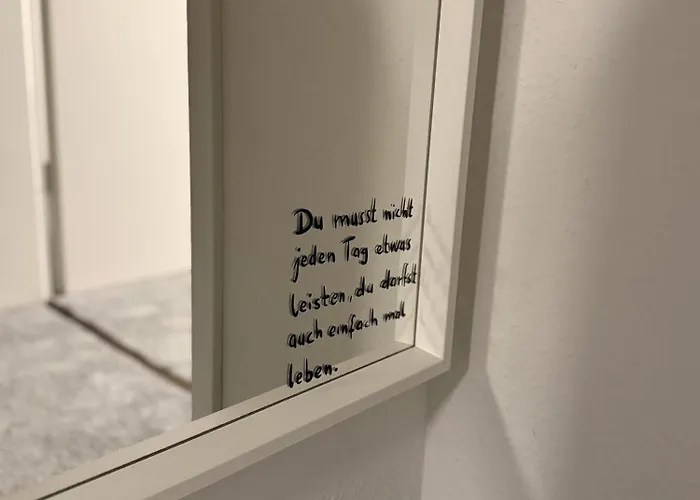 Du musst nicht
jeden Tag etwas
leisten, du darfst
auch einfach mal
leben.